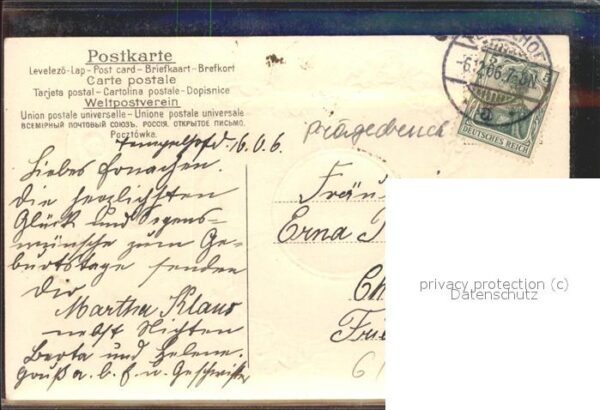 Postkarte
Levelező-Lap - Post card - Briefkaart - Brefkort
Carte postale
Tarjeta postal - Cartolina postale - Dopisnice
Weltpostverein
Union postale universelle - Unione postale universale
ВСЕМІРНЫЙ ПОЧТОВЫЙ СОЮЗЪ. РОССІЯ. ОТКРЫТОЕ ПИСЬМО.
Pocztówka.
DEUTSCHES REICH
5
Prägedruck
Tempelhof d. 6.
Liebes
die herzlichsten
Glück und Segens-
wünsche zum Ge-
burtstage senden
Dir
Martha Klaus
nebst Nichten
Berta und Helene.
Gruß a. b. E. u. Geschwister
Fräu
Erna
Ch
Frie
privacy protection (c)
Datenschutz